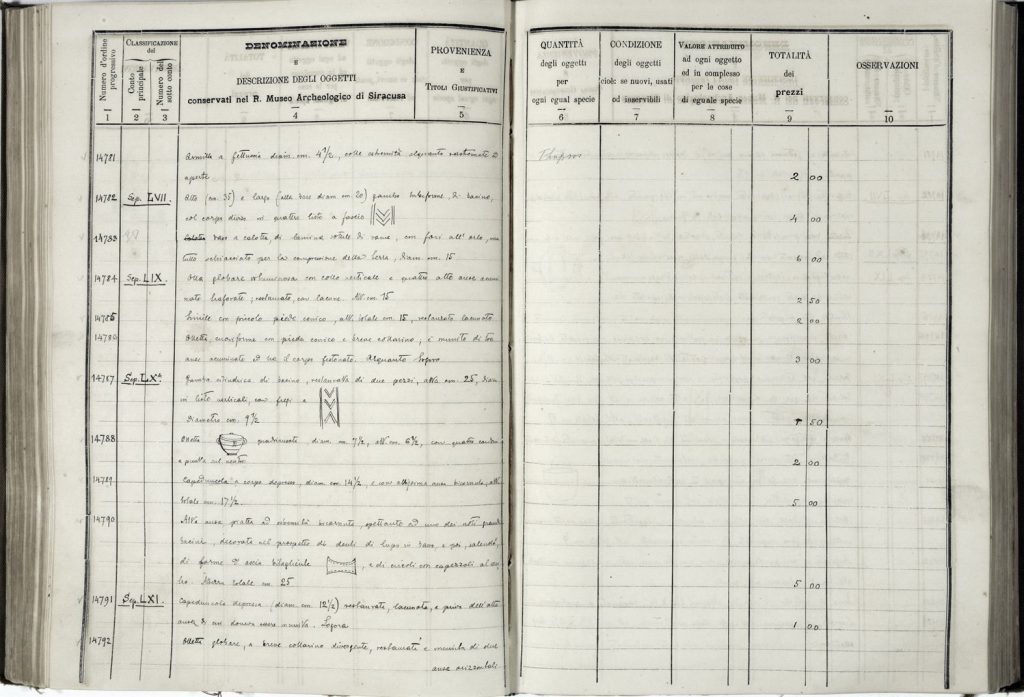 Numero d'ordine progressivo
CLASSIFICAZIONE del
Conto principale
Numero del sotto conto
DENOMINAZIONE
E
DESCRIZIONE DEGLI OGGETTI
conservati nel R. Museo Archeologico di Siracusa
PROVENIENZA
E
TITOLI GIUSTIFICATIVI
1 2 3 4 5
14781 Armilla a fettuccia diam. cm. 4 1/2, colle estremità alquanto
aperte
14782 Sep. LVII. Alto (cm. 35) e largo (alla base diam. cm. 20) gambo tubiforme di bacino,
col corpo diviso in quattro liste a fascio
14783 vaso a calotta, di lamina sottile di rame, con fori all'orlo,
tutto schiacciato per la compressione della terra, diam. cm. 15
14784 Sep. LIX. Olla globare voluminosa con collo verticale e quattro alte anse
traforate; restaurata, con lacune. Alt. cm. 75
14785 Simile con piccolo piede conico, alt. totale cm. 15, restaurata lacunata
14786 Olletta cuoriforme con piede conico e breve collarino; è munita di tre
anse acuminate ed ha il corpo festonato. Alquanto logora
14787 Sep. LX. Gamba cilindrica di bacino, restaurata di due pezzi, alta cm. 25,
in liste verticali, con fregi e
Diametro cm. 9 1/2
14788 Olletta quadriansata diam. cm. 7 1/2, alt. cm. 6 1/2, con quattro
e sul ventre
14789 Capeduncola a corpo depresso, diam. cm. 14 1/2, e con altissima ansa bicornuta, alt.
totale cm. 17 1/2
14790 Alta ansa piatta ad estremità bicornute, spettante ad uno dei noti grandi
bacini, decorata nel prospetto di denti di lupo in basso, e poi, salendo,
di forme d'ascia bitagliente, e di circoli con capezzoli al
Altezza totale cm. 25
14791 Sep. LXI. Capeduncola depressa (diam. cm. 12 1/2) restaurata, lacunata, e priva dell'alta
ansa di cui doveva essere munita. Logora
14792 Olletta globare, a breve collarino divergente, restaurata e munita di due
anse orizzontali
QUANTITÀ
degli oggetti
per
ogni egual specie
CONDIZIONE
degli oggetti
cioè: se nuovi, usati
od inservibili
VALORE ATTRIBUITO
ad ogni oggetto
od in complesso
per le cose
di eguale specie
TOTALITÀ
dei
prezzi
OSSERVAZIONI
6 7 8 9 10
Thapsos
2 00
4 00
6 00
2 50
2 00
3 00
1 50
2 00
5 00
5 00
1 00